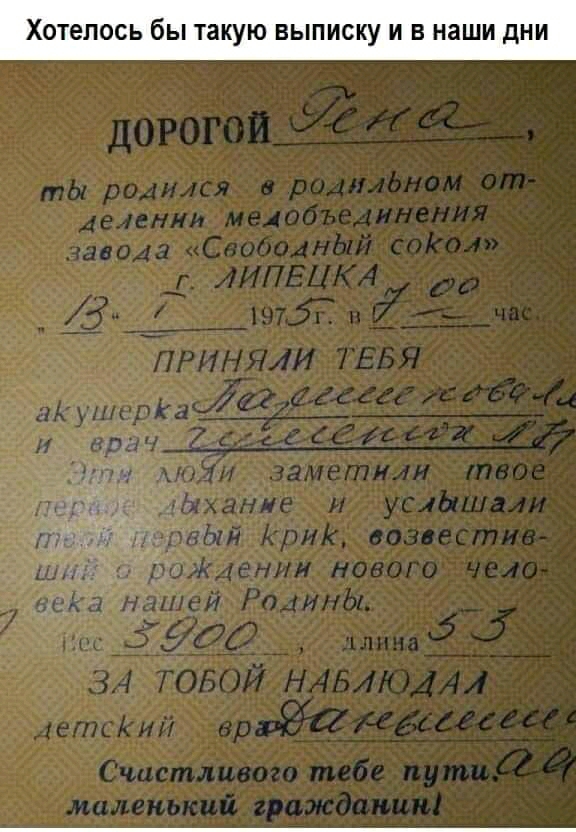 Хотелось бы такую выписку и в наши дни
ДОРОГОЙ Гена,
ты родился в родильном от-
делении медобъединения
завода «Свободный сокол»
г. ЛИПЕЦКА
„13“ I 1975г. в 7 00 час.
ПРИНЯЛИ ТЕБЯ
акушерка
и врач
Эти люди заметили твое
первое дыхание и услышали
твой первый крик, возвестив-
ший о рождении нового чело-
века нашей Родины.
Вес 3900, длина 53
ЗА ТОБОЙ НАБЛЮДАЛ
детский врач
Счастливого тебе пути,
маленький гражданин!